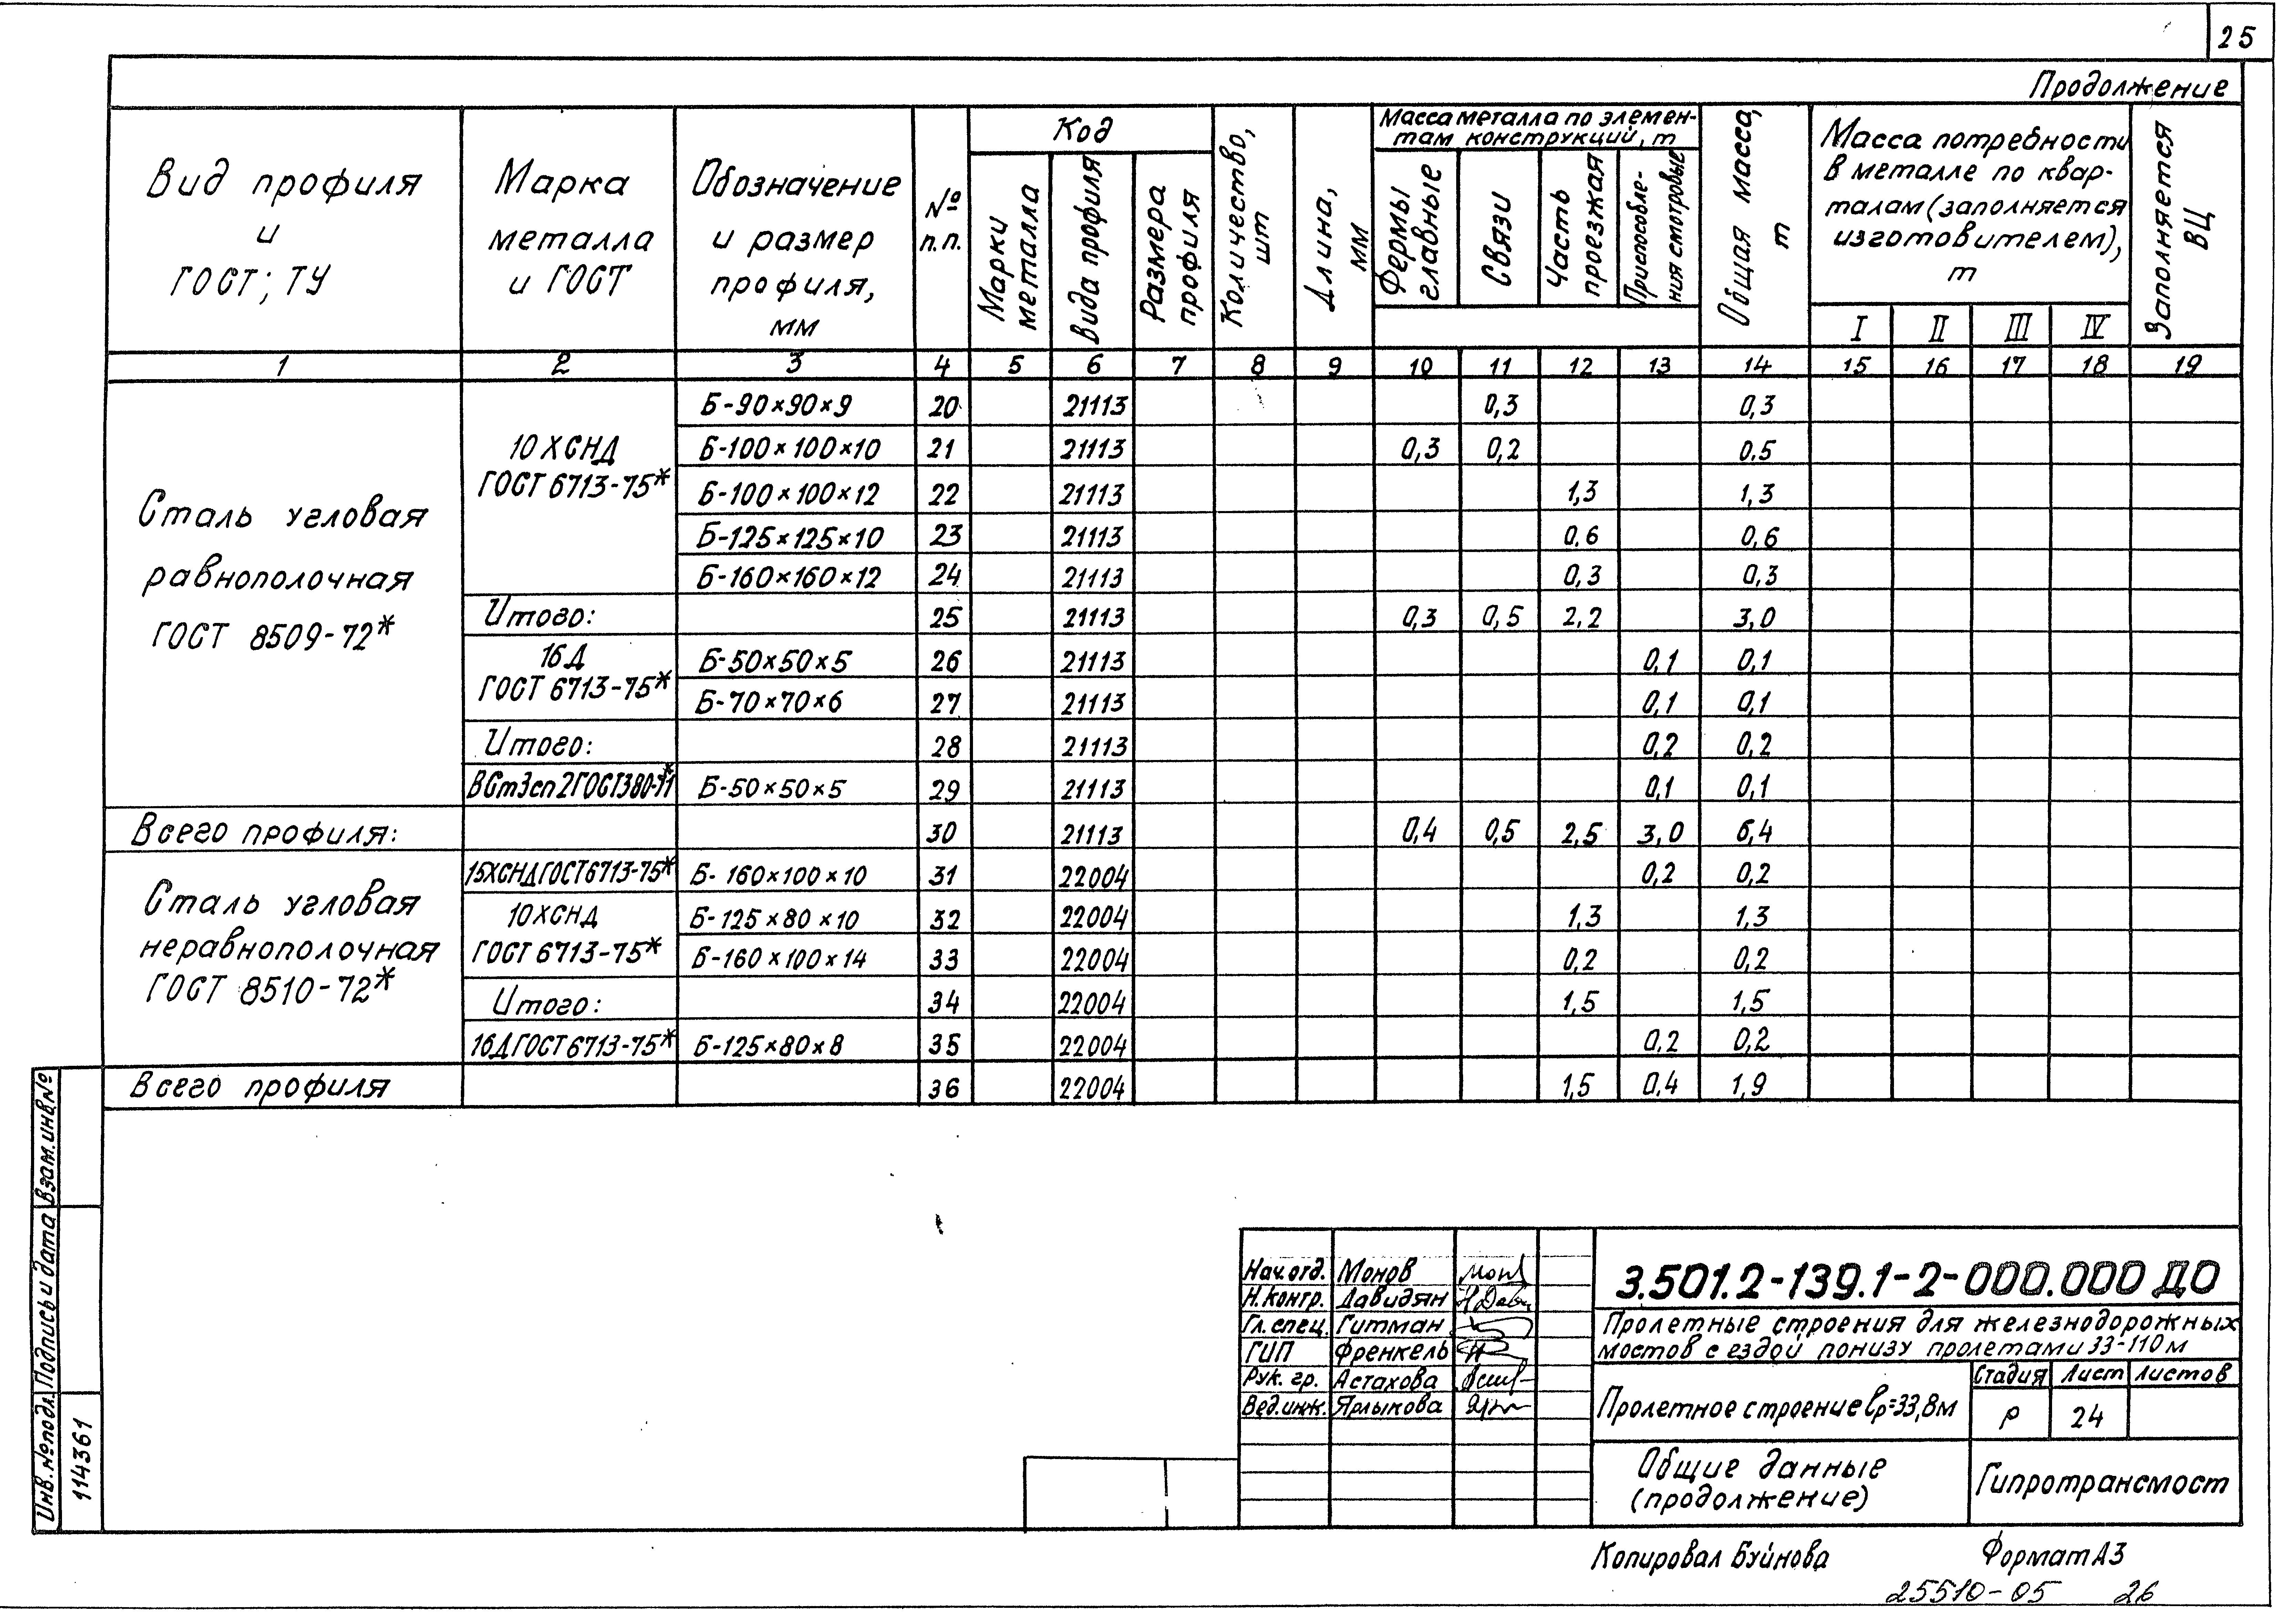 25
Продолжение
Вид профиля и ГОСТ; ТУ
Марка металла и ГОСТ
Обозначение и размер профиля, мм
№ п.п.
Код
Марки металла
Вида профиля
Размера профиля
Количество, шт
Длина, мм
Масса металла по элемен-
там конструкций, т
Фермы главные
Связи
Часть проезжая
Приспособле-
ния смотровые
Общая масса, т
Масса потребности
в металле по квар-
талам (заполняется
изготовителем),
т
I II III IV
Заполняется ВЦ
1 2 3 4 5 6 7 8 9 10 11 12 13 14 15 16 17 18 19
Сталь угловая
равнополочная
ГОСТ 8509-72*
10ХСНД
ГОСТ 6713-75*
Б-90×90×9 20 21113 0,3 0,3
Б-100×100×10 21 21113 0,3 0,2 0.5
Б-100×100×12 22 21113 1,3 1,3
Б-125×125×10 23 21113 0.6 0,6
Б-160×160×12 24 21113 0,3 0,3
Итого: 25 21113 0,3 0,5 2,2 3,0
16Д
ГОСТ 6713-75*
Б-50×50×5 26 21113 0,1 0,1
Б-70×70×6 27 21113 0,1 0,1
Итого: 28 21113 0,2 0,2
ВСт3сп2ГОСТ380-71* Б-50×50×5 29 21113 0,1 0,1
Всего профиля: 30 21113 0,4 0,5 2,5 3,0 6,4
Сталь угловая
неравнополочная
ГОСТ 8510-72*
15ХСНДГОСТ6713-75* Б-160×100×10 31 22004 0,2 0,2
10ХСНД
ГОСТ 6713-75*
Б-125×80×10 32 22004 1,3 1,3
Б-160×100×14 33 22004 0,2 0,2
Итого: 34 22004 1,5 1,5
16ДГОСТ6713-75* Б-125×80×8 35 22004 0.2 0,2
Всего профиля 36 22004 1,5 0,4 1,9
Взам.инв№
Подпись и дата
Инв.№подл.
114361
Нач.отд. Монов
Н.контр. Давидян
Гл. спец. Гитман
ГИП Френкель
Рук. гр. Астахова
Вед.инж. Ярлыкова
3.501.2-139.1-2-000.000 ДО
Пролетные строения для железнодорожных
мостов с ездой понизу пролетами 33-110м
Пролетное строение lр=33,8м
Стадия Лист Листов
Р 24
Общие данные
(продолжение)
Гипротрансмост
Копировал Буйнова
Формат А3
25510-05 26